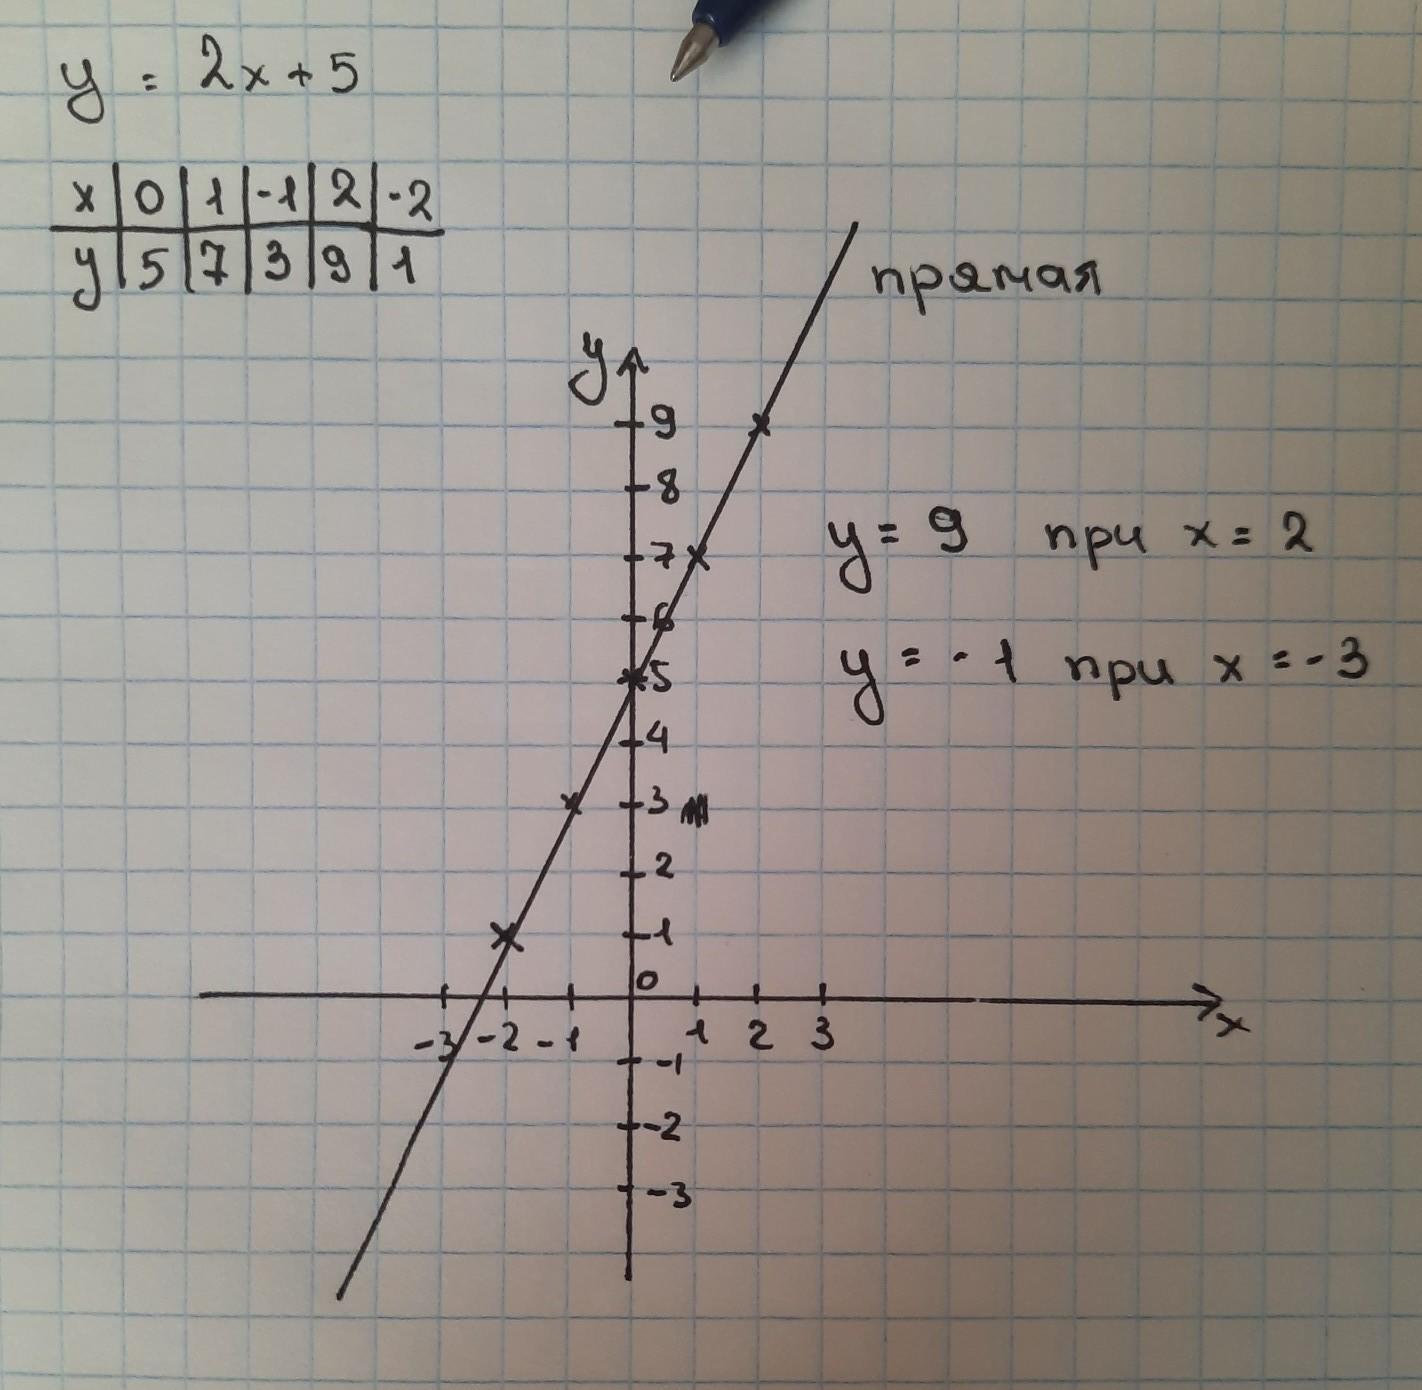 y = 2x + 5
x 0 1 -1 2 -2
y 5 7 3 9 1
прямая
y
9
8
7
6
5
4
3
2
1
0
-3 -2 -1 1 2 3
x
-1
-2
-3
y = 9 при x = 2
y = -1 при x = -3